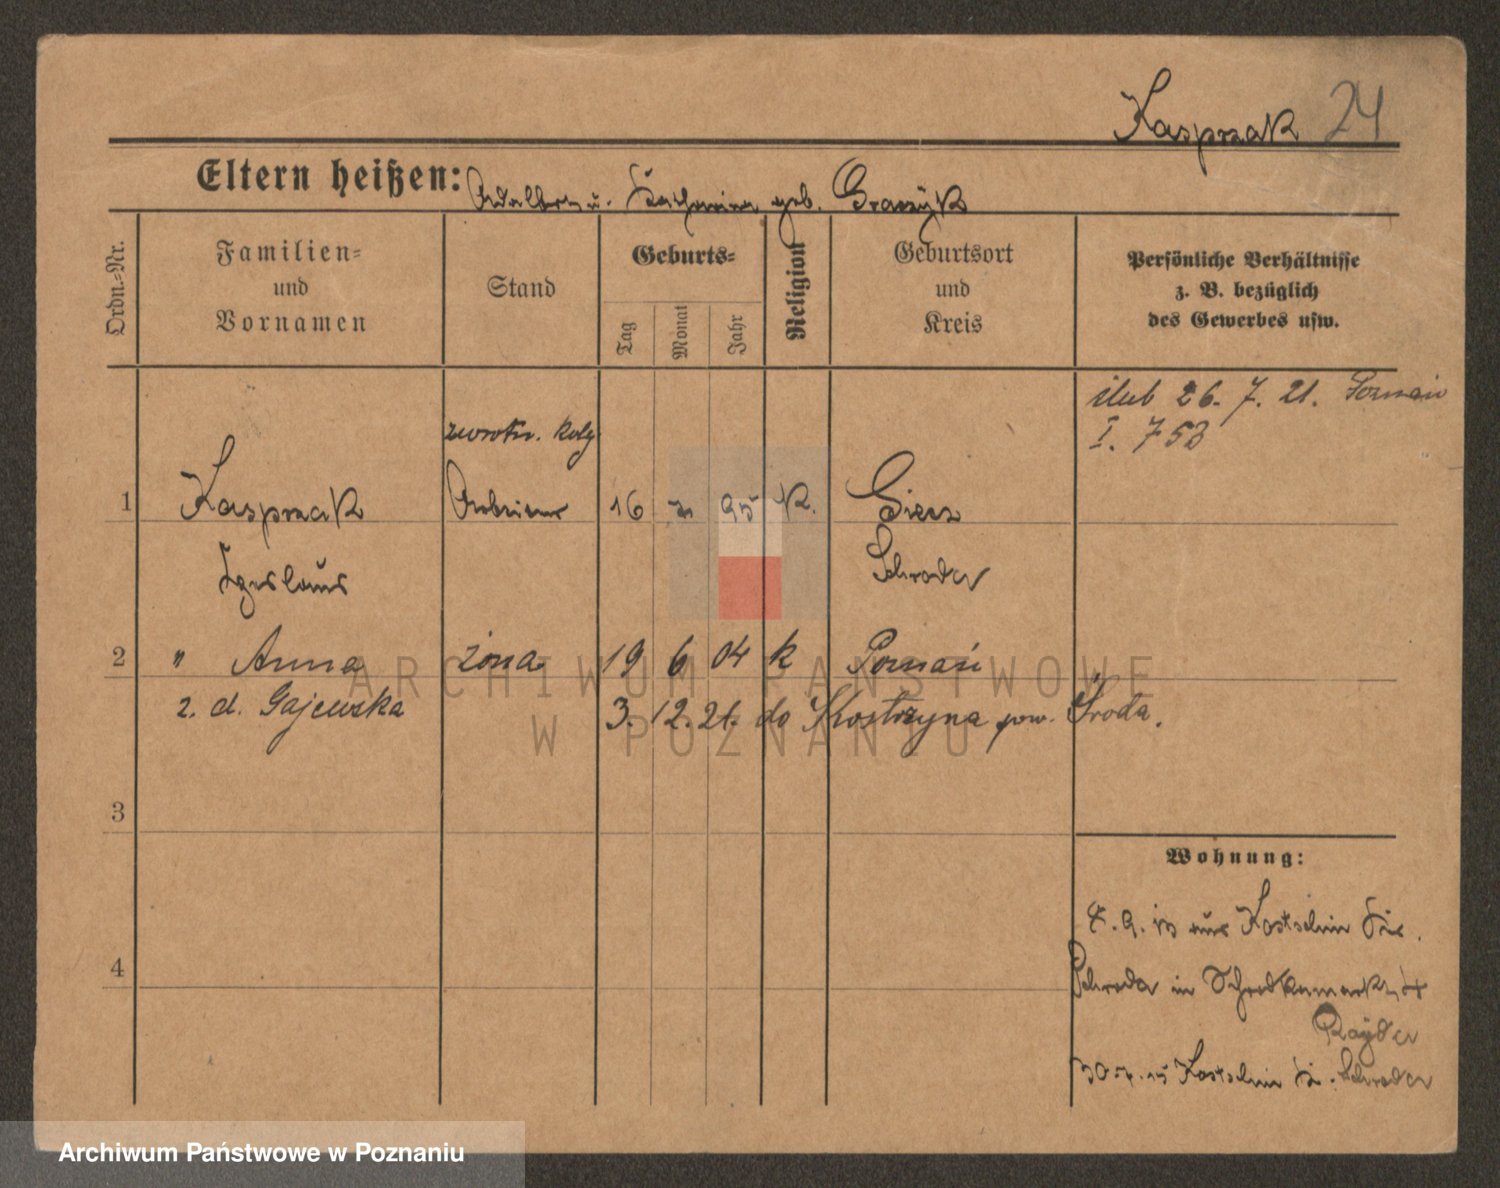 Kasprzak 24
Eltern heißen: Adalbert u. Katharina geb.
Ordn.=Nr.
Familien=
und
Vornamen
Stand
Geburts=
Tag
Monat
Jahr
Religion
Geburtsort
und
Kreis
Persönliche Verhältnisse
z. B. bezüglich
des Gewerbes usw.
ślub 26. 7. 21. Poznań
I. 753
zwrotn. kolej
1 Kasprzak 16 95 K. Giecz
Schroda
2 " Anna żona 19 6 04 k Poznań
z. d. Gajewska 3. 12. 21. do Kostrzyna pow. Środa.
3
Wohnung:
4. 9. 13 aus Kostschin Kr.
4
Schroda in
30. 7. 15 Kostschin Kr. Schroda
ARCHIWUM PAŃSTWOWE
W POZNANIU
Archiwum Państwowe w Poznaniu